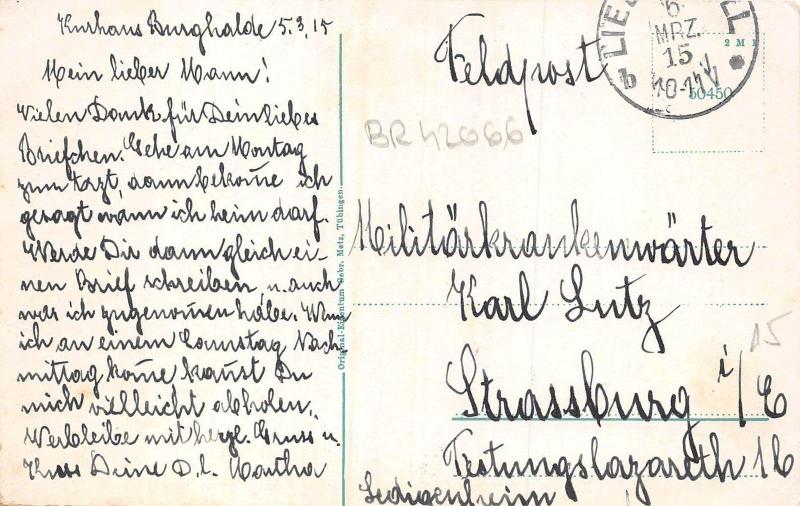 Kurhaus Burghalde 5.3.15
Mein lieber Mann!
Vielen Dank für Dein liebes
Briefchen. Gehe am Montag
zum Arzt, dann bekom̅e ich
gesagt wann ich heim darf.
Werde Dir dann gleich ei-
nen Brief schreiben, u. auch
was ich zugenom̅en habe. Wenn
ich an einem Samstag Nach
mittag kom̅e kan̅st Du
mich vielleicht abholen.
Verbleibe mit herzl. Gruss u.
Kuss Deine D. l. Martha
Original-Eigentum Gebr. Metz, Tübingen.
Feldpost
LIEBENZELL
6.
MRZ.
15
10-11V
b
2 M 1
50450
BR 42066
Militärkrankenwärter
Karl Lutz
15
Strassburg i/E
Festungslazareth 1b